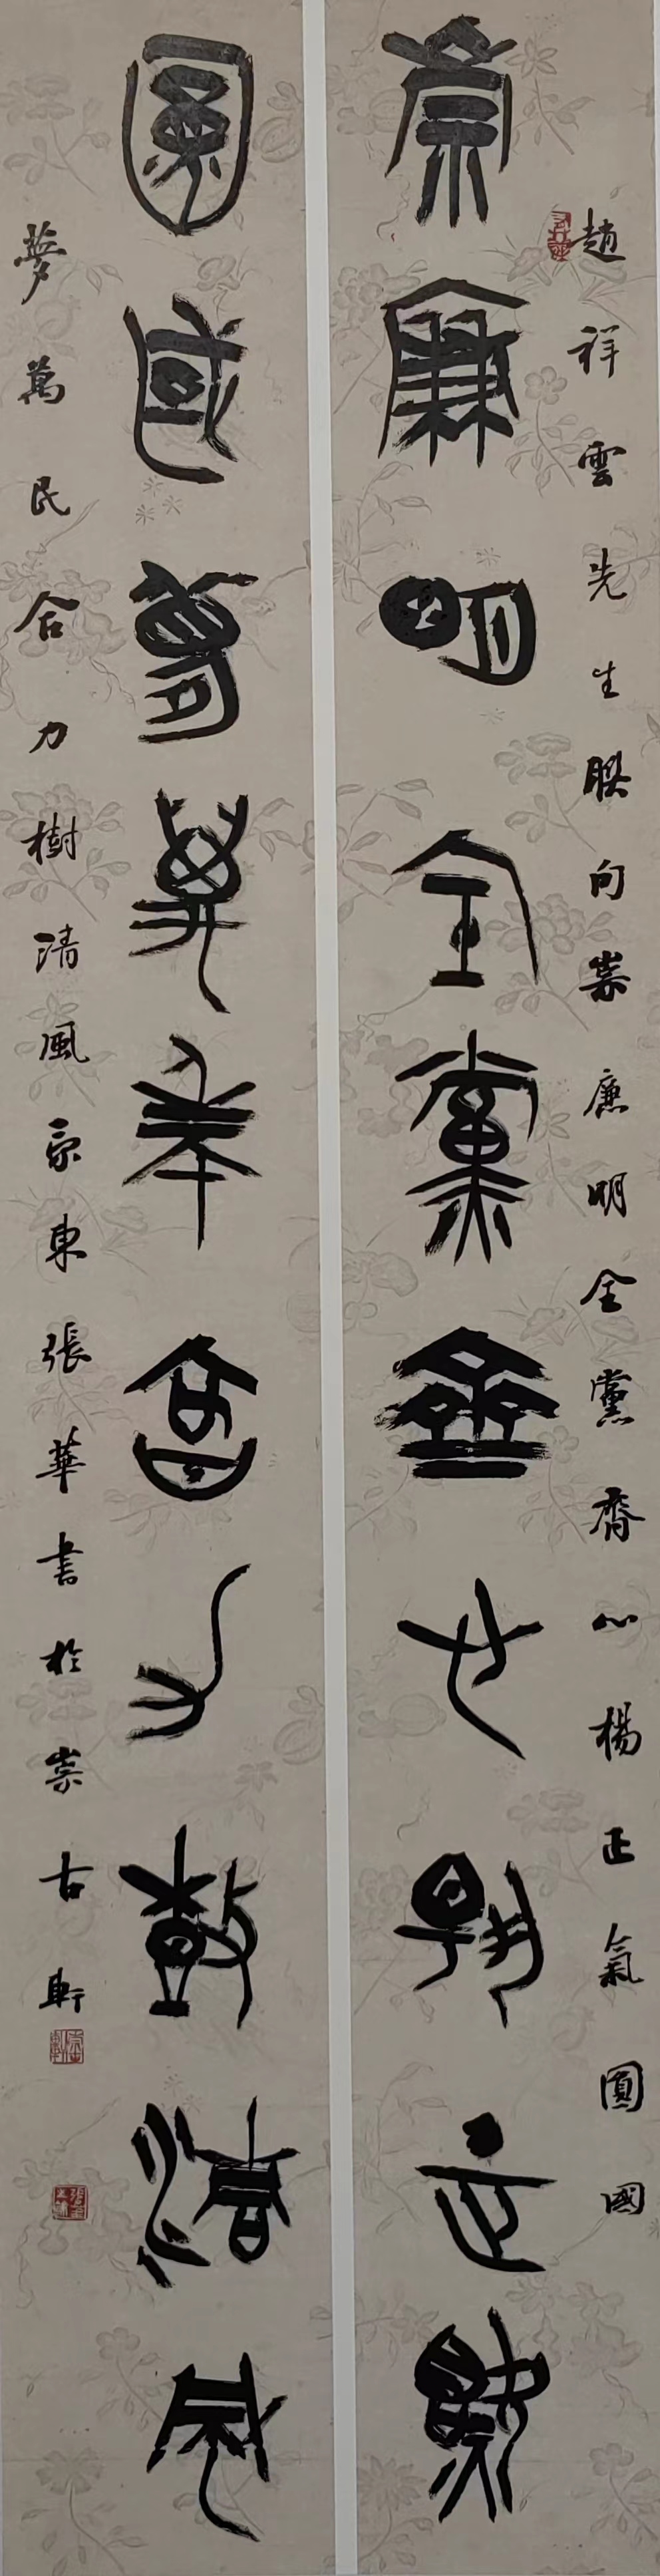 趙祥雲先生聯句崇廉明全黨齊心楊正氣圓國
崇廉明全黨齊心揚正氣
圓國夢萬民合力樹清風
夢萬民合力樹清風東張華書於崇古軒